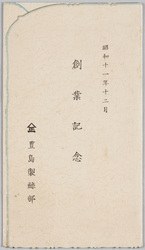 昭和十一年十二月
創業記念
豊島製絲部